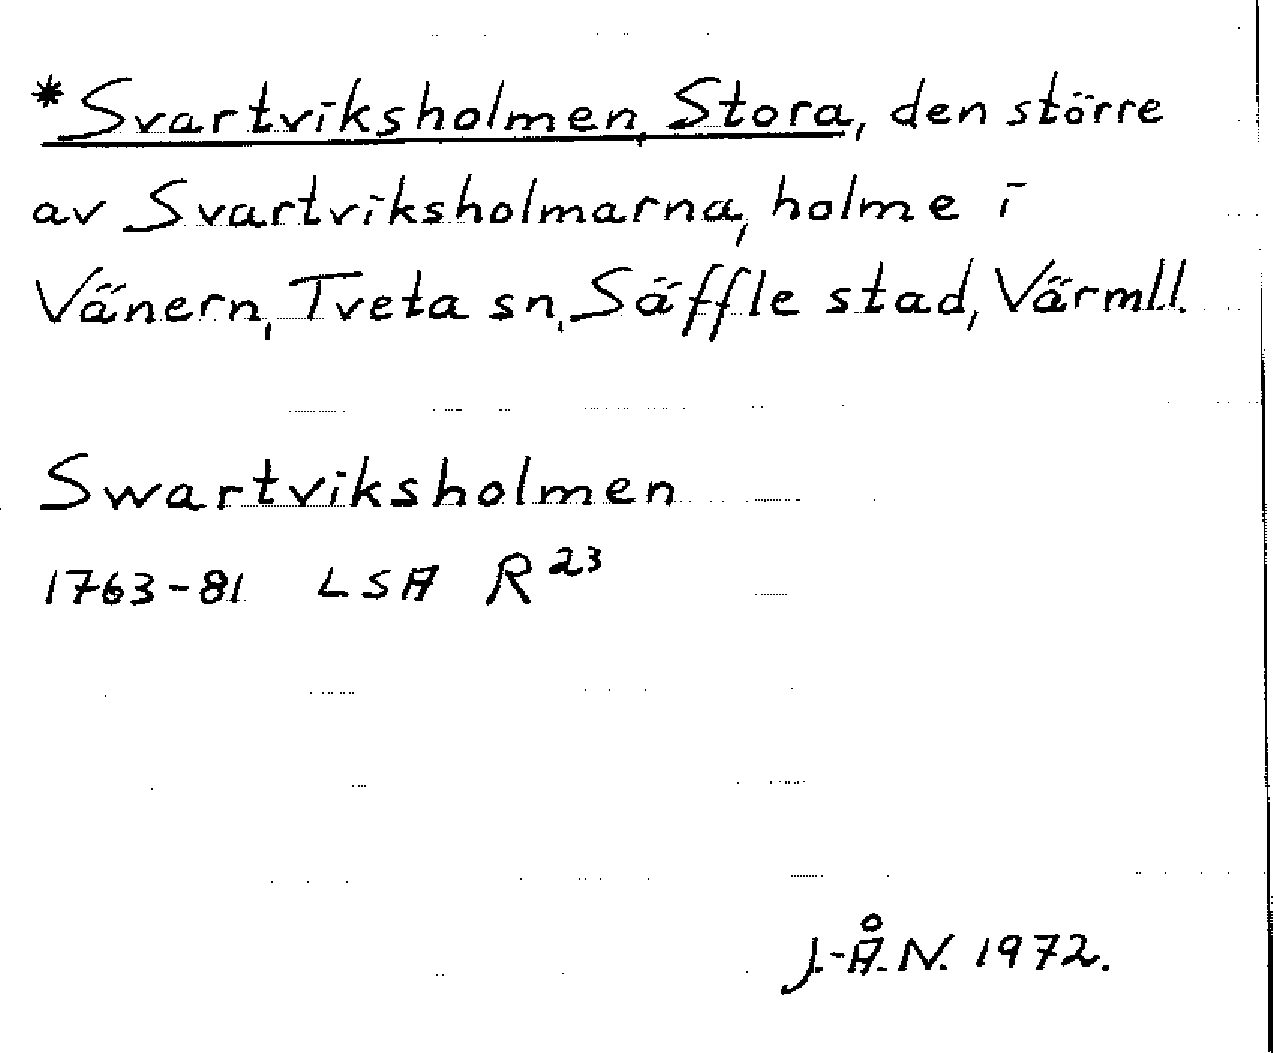 *Svartviksholmen, Stora, den större
av Svartviksholmarna, holme i
Vänern, Tveta sn, Säffle stad, Värml.l.
Swartviksholmen
1763-81 LSA R 23
J.-Å.N. 1972.